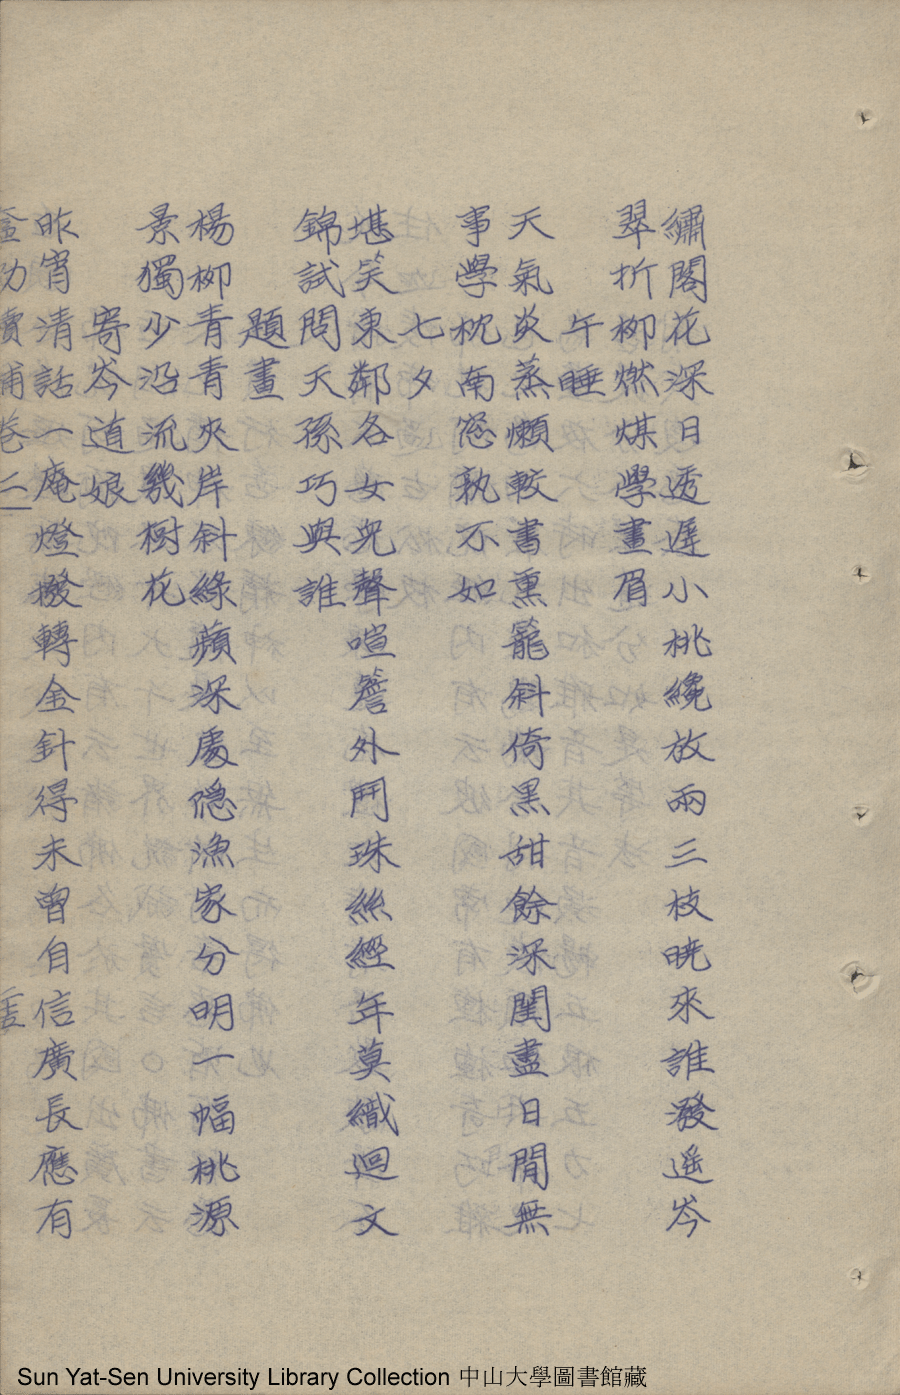 繡閣花深日透遲小桃纔放兩三枝曉來誰潑遥岑
翠折柳燃煤學畫眉
午睡
天氣炎蒸懶較書熏籠斜倚黑甜餘深閨盡日閒無
事學枕南窓執不如
七夕
堪笑東鄰各女兒聲喧簷外鬥珠絲經年莫織迴文
錦試問天孫巧與誰
題畫
楊柳青青夾岸斜綠蘋深處隐漁家分明一幅桃源
景獨少沿流幾樹花
寄岑道娘
昨宵清話一庵燈撥轉金針得未曾自信廣長應有
卷二
Sun Yat-Sen University Library Collection 中山大學圖書館藏